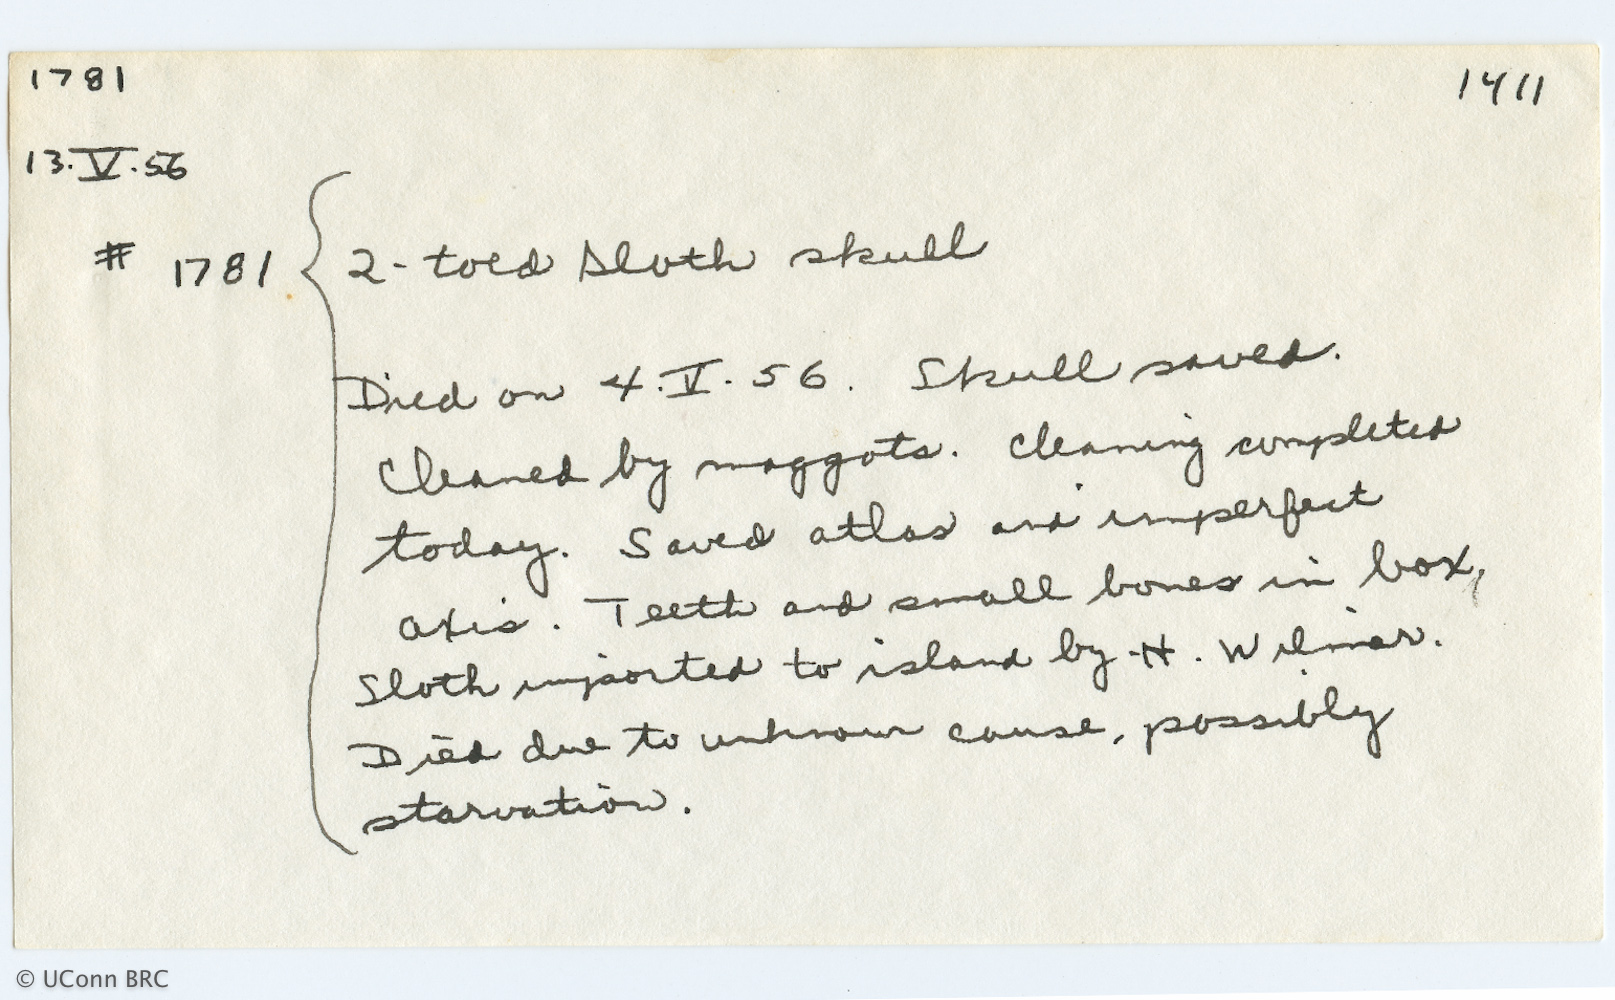 1781
1411
13.V.56
# 1781
2-toed Sloth skull
Died on 4.V.56. Skull saved.
Cleaned by maggots. Cleaning completed
today. Saved atlas and imperfect
axis. Teeth and small bones in box.
Sloth imported to island by H. Wilmar.
Died due to unknown cause, possibly
starvation.
© UConn BRC